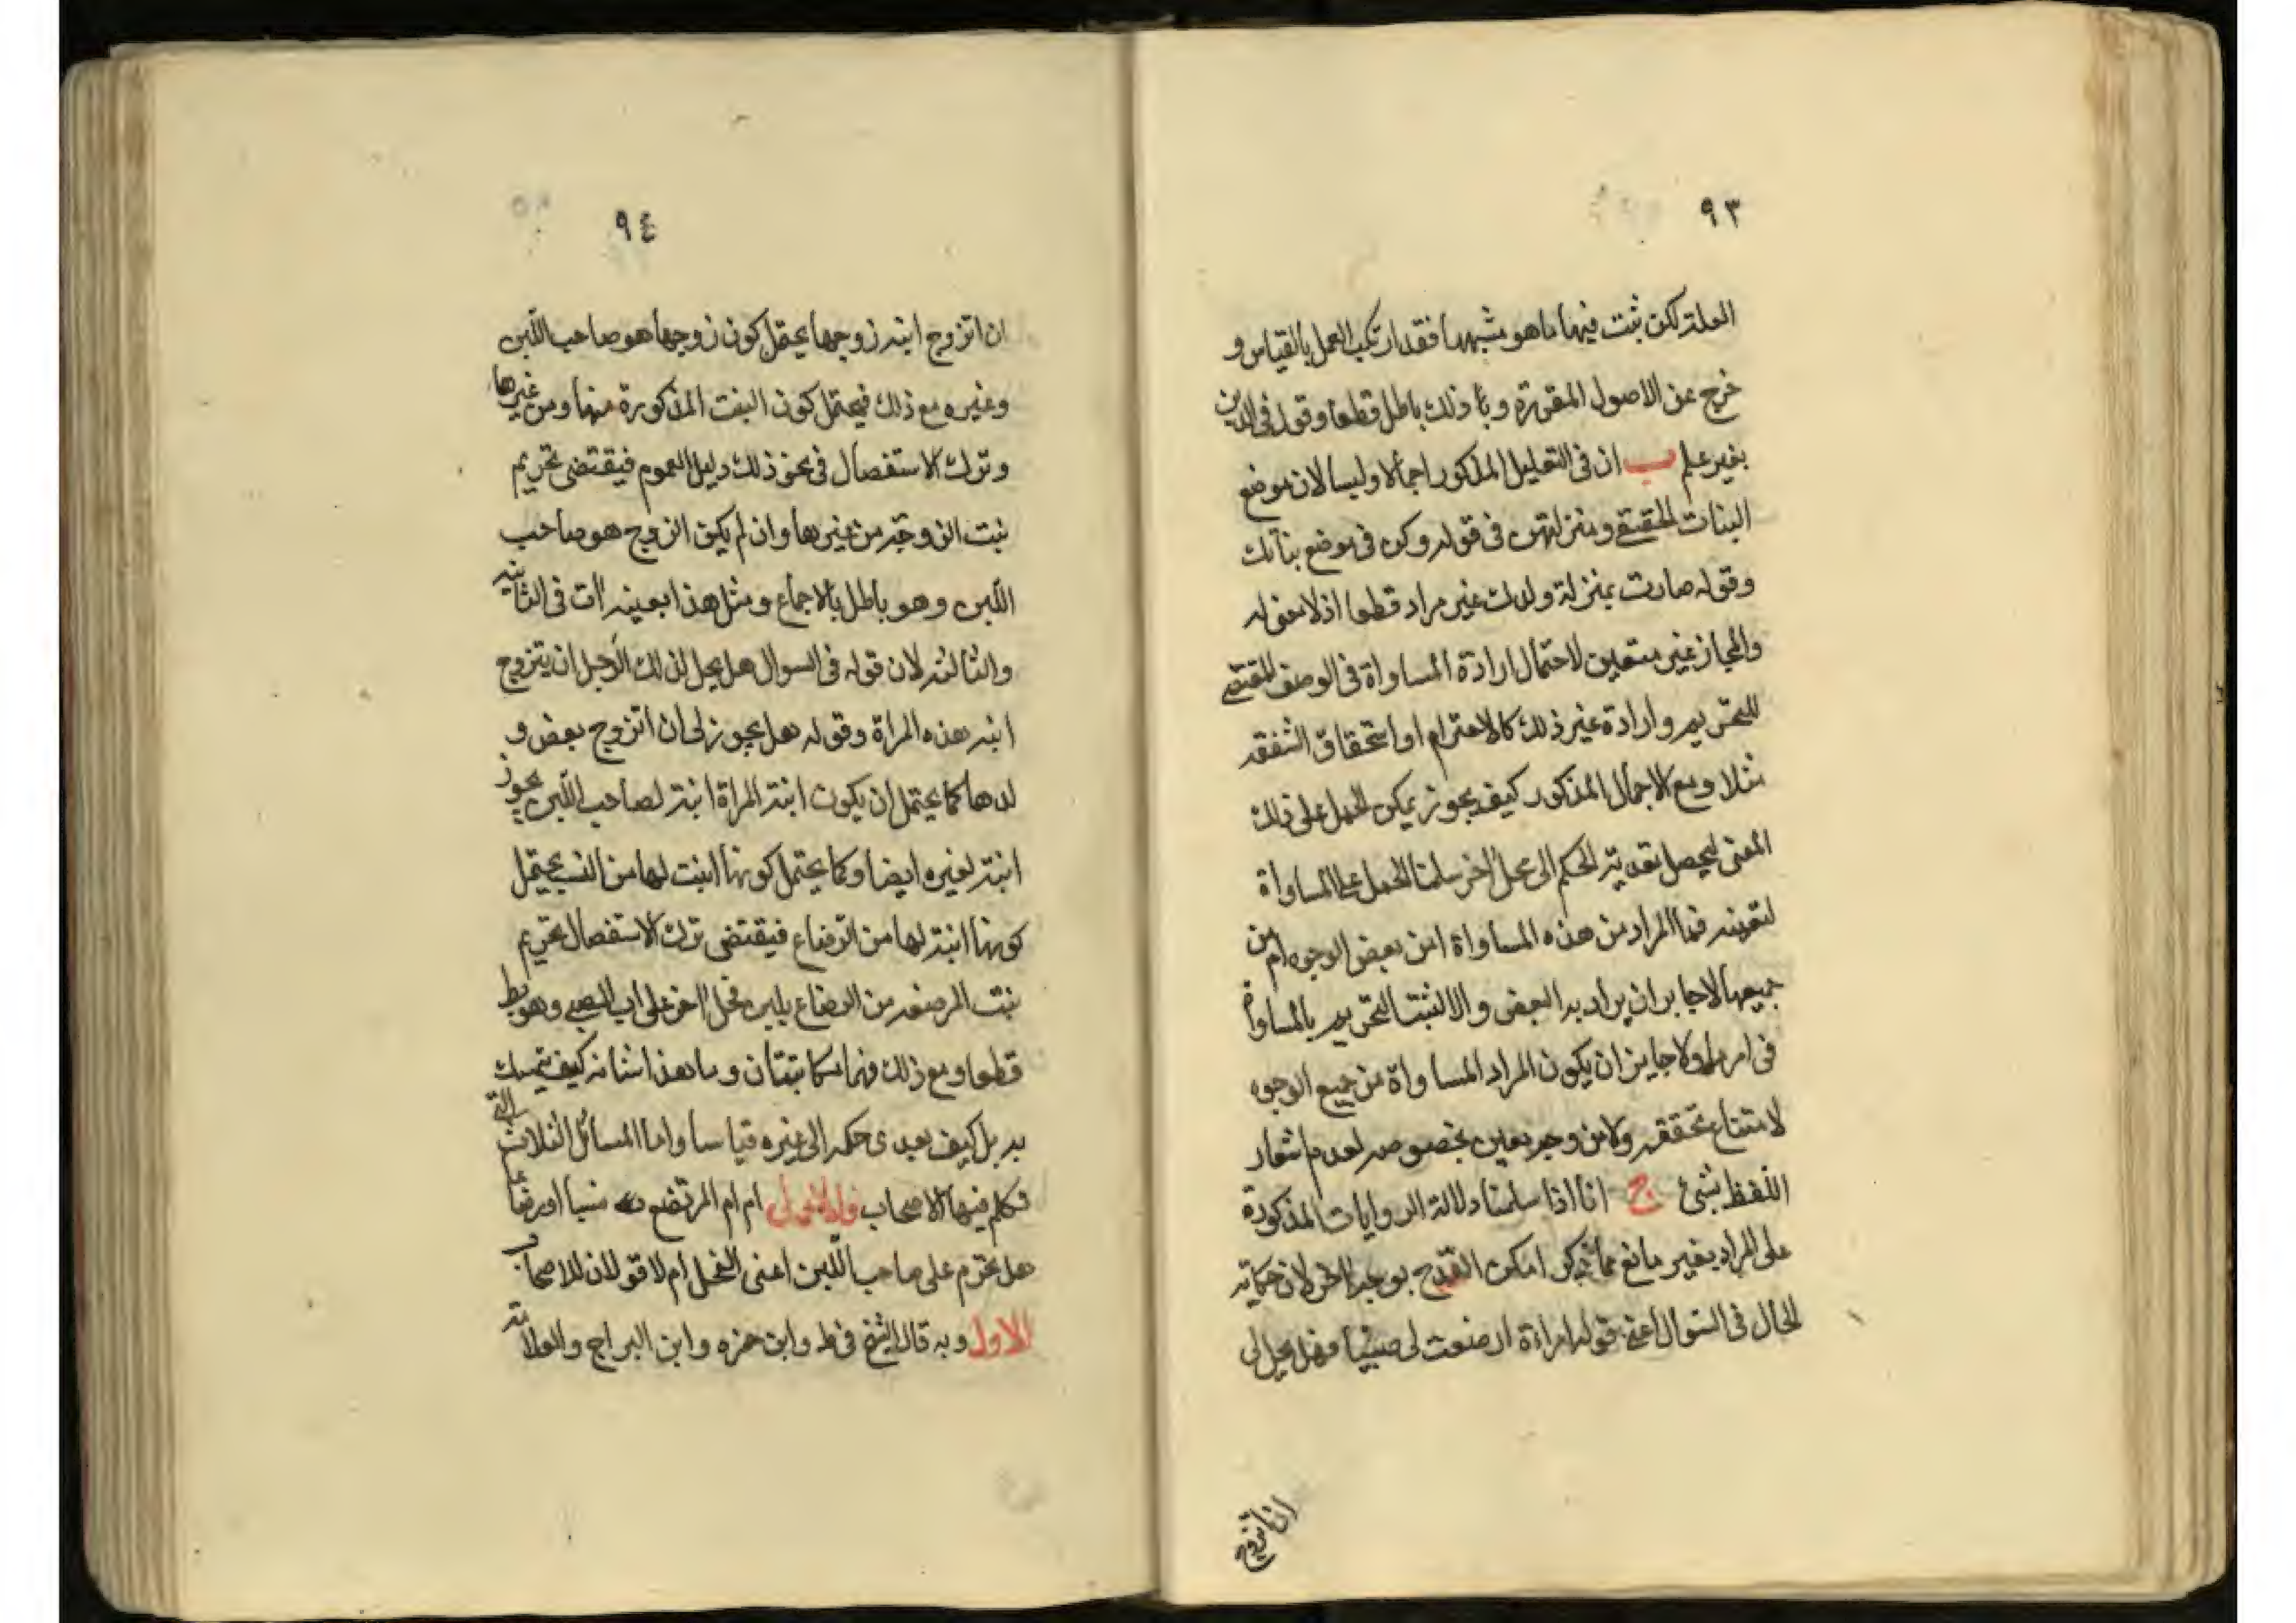 ٩٣
العلة لكن ثبت فيها ما هو مشبهها فقد ارتكب العمل بالقياس و
خرج عن الاصول المقررة وبأ ذلك باطل قطعا وقول فى الدين
بغير علم ب ان فى التعليل المذكور اجمالا وليسا لان موضع
البنات الحقيقى ومنزلتهن فى قوله وكن فى موضع بناتك
وقوله صارت بمنزلة ولدك غير مراد قطعا اذ لا معنى له
والمجاز غير متعين لاحتمال ارادة المساواة فى الوصف المقتضى
للتحريم وارادة غير ذلك كالاحترام او استحقاق الشفقه
مثلا ومع الاجمال المذكور كيف يجوز يمكن الحمل على ذلك
المعنى ليحصل تعدية الحكم الى محل اخر سلمنا الحمل على المساواة
لتعينه فما المراد من هذه المساواة امن بعض الوجوه ام من
جميعها لا جايز ان يراد به البعض والا لثبت التحريم بالمساواة
فى امر ما ولا جايز ان يكون المراد المساواة من جميع الوجوه
لامتناع تحققه ولا من وجه معين بخصوصه لعدم اشعار
اللفظ بشئ ج انا اذا سلمنا دلالة الروايات المذكورة
على المراد بغير مانع مما ذكر امكن القدح بوجه اخر لان حكاية
الحال فى السوال اعنى قوله امراءة ارضعت لى صبيا فهل يحل لى
ان اتزوج
٩٤
ان اتزوج ابنه زوجها يحتمل كون زوجها هو صاحب اللبن
وغيره مع ذلك فيحتمل كون البنت المذكورة منها ومن غيرها
وترك الاستفصال فى نحو ذلك دليل العموم فيقتضى تحريم
بنت الزوجة من غيرها وان لم يكن الزوج هو صاحب
اللبن وهو باطل بالاجماع ومثل هذا بعينه ات فى الثانيه
والثالثه لان قوله فى السوال هل يحل لذلك الرجل ان يتزوج
ابنه هذه المراة وقوله هل يجوز لى ان اتزوج بعض و
لدها كما يحتمل ان يكون ابنة المراة ابنة لصاحب اللبن يجوز
ابنة لغيره ايضا وكما يحتمل كونها ابنت لها من النسب يحتمل
كونها ابنة لها من الرضاع فيقتضى ترك الاستفصال تحريم
بنت المرضعه من الرضاع بلبن فحل اخر على اب الصبى وهو بط
قطعا ومع ذلك فهما مكاتبتان وما هذا شانه كيف يتمسك
به بل كيف يعدى حكمه الى غيره قياسا واما المسائل الثلاث التى
تكلم فيها الاصحاب فالاولى ام ام المرتضع نسبا او رضاعا
هل تحرم على صاحب اللبن اعنى الفحل ام لا قولان للاصحاب
الاول وبه قال الشيخ فى ط وابن حمزه وابن البراج والعلامة